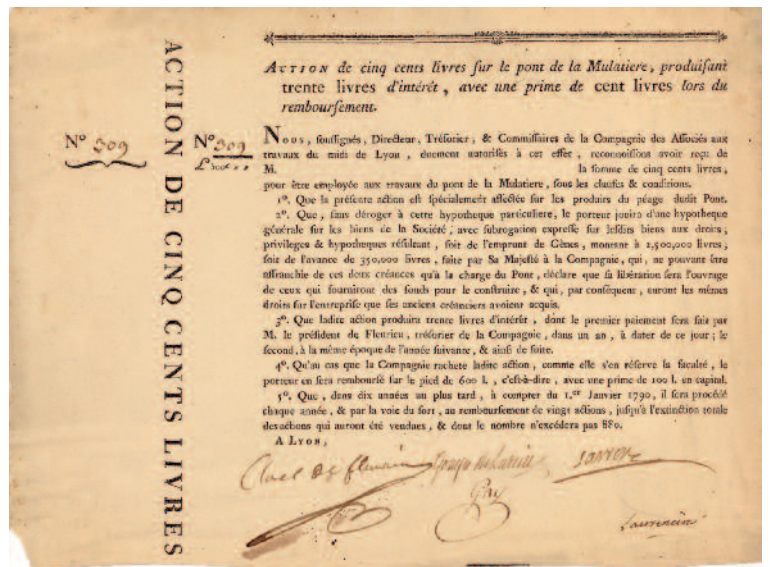 ACTION DE CINQ CENTS LIVRES
Nº 309
ACTION de cinq cents livres sur le pont de la Mulatiere, produisant
trente livres d'intérêt, avec une prime de cent livres lors du
remboursement.
Nº 309
NOUS, soussignés, Directeur, Trésorier, & Commissaires de la Compagnie des Associés aux
travaux du midi de Lyon, duement autorisés à cet effet, reconnoissons avoir reçu de
M. la somme de cinq cents livres,
pour être employée aux travaux du pont de la Mulatiere, sous les clauses & conditions.
1º. Que la présente action est spécialement affectée sur les produits du péage dudit Pont.
2º. Que, sans déroger à cette hypotheque particuliere, le porteur jouira d'une hypotheque
générale sur les biens de la Société; avec subrogation expresse sur lesdits biens aux droits,
privileges & hypotheques résultant, soit de l'emprunt de Gènes, montant à 1,500,000 livres,
soit de l'avance de 350,000 livres, faite par Sa Majesté à la Compagnie, qui, ne pouvant être
affranchie de ces deux créances qu'à la charge du Pont, déclare que sa libération sera l'ouvrage
de ceux qui fourniront des fonds pour le construire, & qui, par conséquent, auront les mêmes
droits sur l'entreprise que ses anciens créanciers avoient acquis.
3º. Que ladite action produira trente livres d'intérêt, dont le premier paiement sera fait par
M. le président de Fleurieu, trésorier de la Compagnie, dans un an, à dater de ce jour; le
second, à la même époque de l'année suivante, & ainsi de suite.
4º. Qu'au cas que la Compagnie rachete ladite action, comme elle s'en réserve la faculté, le
porteur en sera remboursé sur le pied de 600 l., c'est-à-dire, avec une prime de 100 l. en capital.
5º. Que, dans dix années au plus tard, à compter du 1.er Janvier 1790, il sera procédé
chaque année, & par la voie du sort, au remboursement de vingt actions, jusqu'à l'extinction totale
des actions qui auront été vendues, & dont le nombre n'excédera pas 880.
A LYON,
de fleurieu
Laurencin